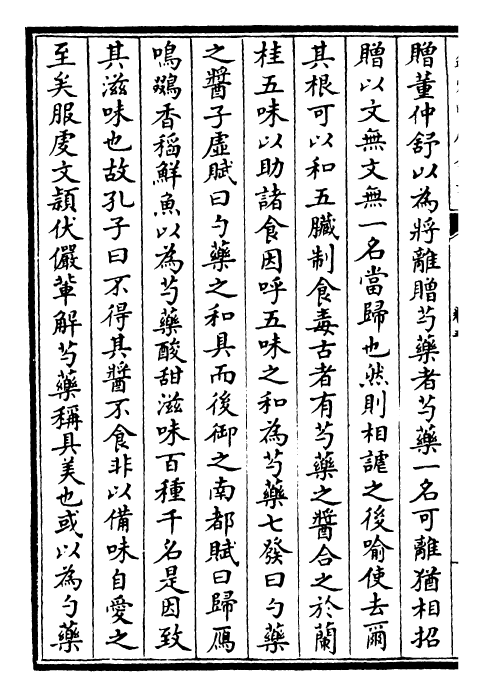 贈董仲舒以為將離贈芍藥者芍藥一名可離猶相招
贈以文無文無一名當歸也然則相謔之後喻使去爾
其根可以和五臓制食毒古者有芍藥之醬合之於蘭
桂五味以助諸食因呼五味之和為芍藥七發曰勺藥
之醬子虛賦曰勺藥之和具而後御之南都賦曰歸鴈
鳴鵽香稻鮮魚以為芍藥酸甜滋味百種千名是因致
其滋味也故孔子曰不得其醬不食非以備味自愛之
至矣服虔文頴伏儼輩解芍藥稱具美也或以為勺藥